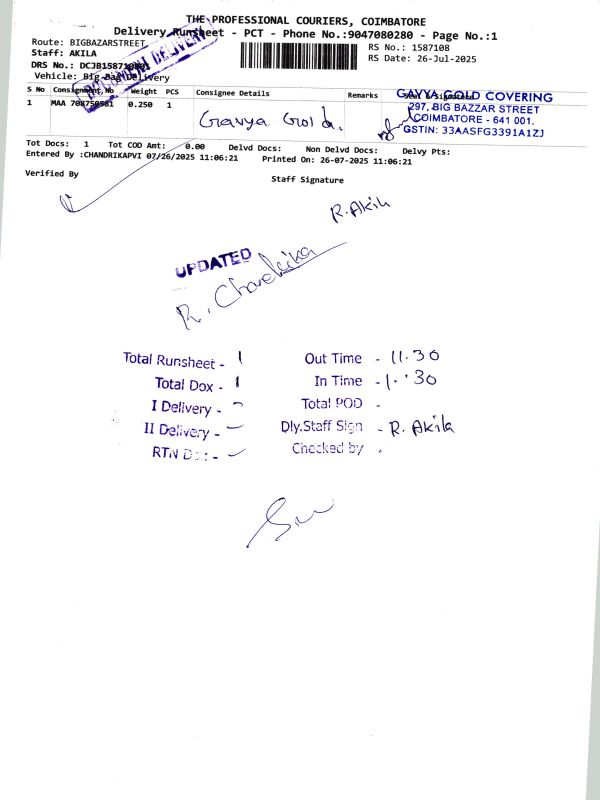 THE PROFESSIONAL COURIERS, COIMBATORE
Delivery Runsheet - PCT - Phone No.:9047080280 - Page No.:1
Route: BIGBAZARSTREET
RS No.: 1587108
Staff: AKILA
RS Date: 26-Jul-2025
DRS No.: DCJB1587108
Vehicle: Big Bag Delivery
DELIVERY
S No Consignment No Weight PCS Consignee Details Remarks
1 MAA 708750581 0.250 1
Gavya Gold.
GAVYA GOLD COVERING
297, BIG BAZZAR STREET
COIMBATORE - 641 001.
GSTIN: 33AASFG3391A1ZJ
Tot Docs: 1 Tot COD Amt: 0.00 Delvd Docs: Non Delvd Docs: Delvy Pts:
Entered By :CHANDRIKAPVI 07/26/2025 11:06:21 Printed On: 26-07-2025 11:06:21
Verified By
Staff Signature
R. Akila
UPDATED
R. Chandrika
Total Runsheet - 1
Out Time - 11.30
Total Dox - 1
In Time - 1.30
I Delivery -
Total POD -
II Delivery -
Dly.Staff Sign - R. Akila
RTN Dox -
Checked by